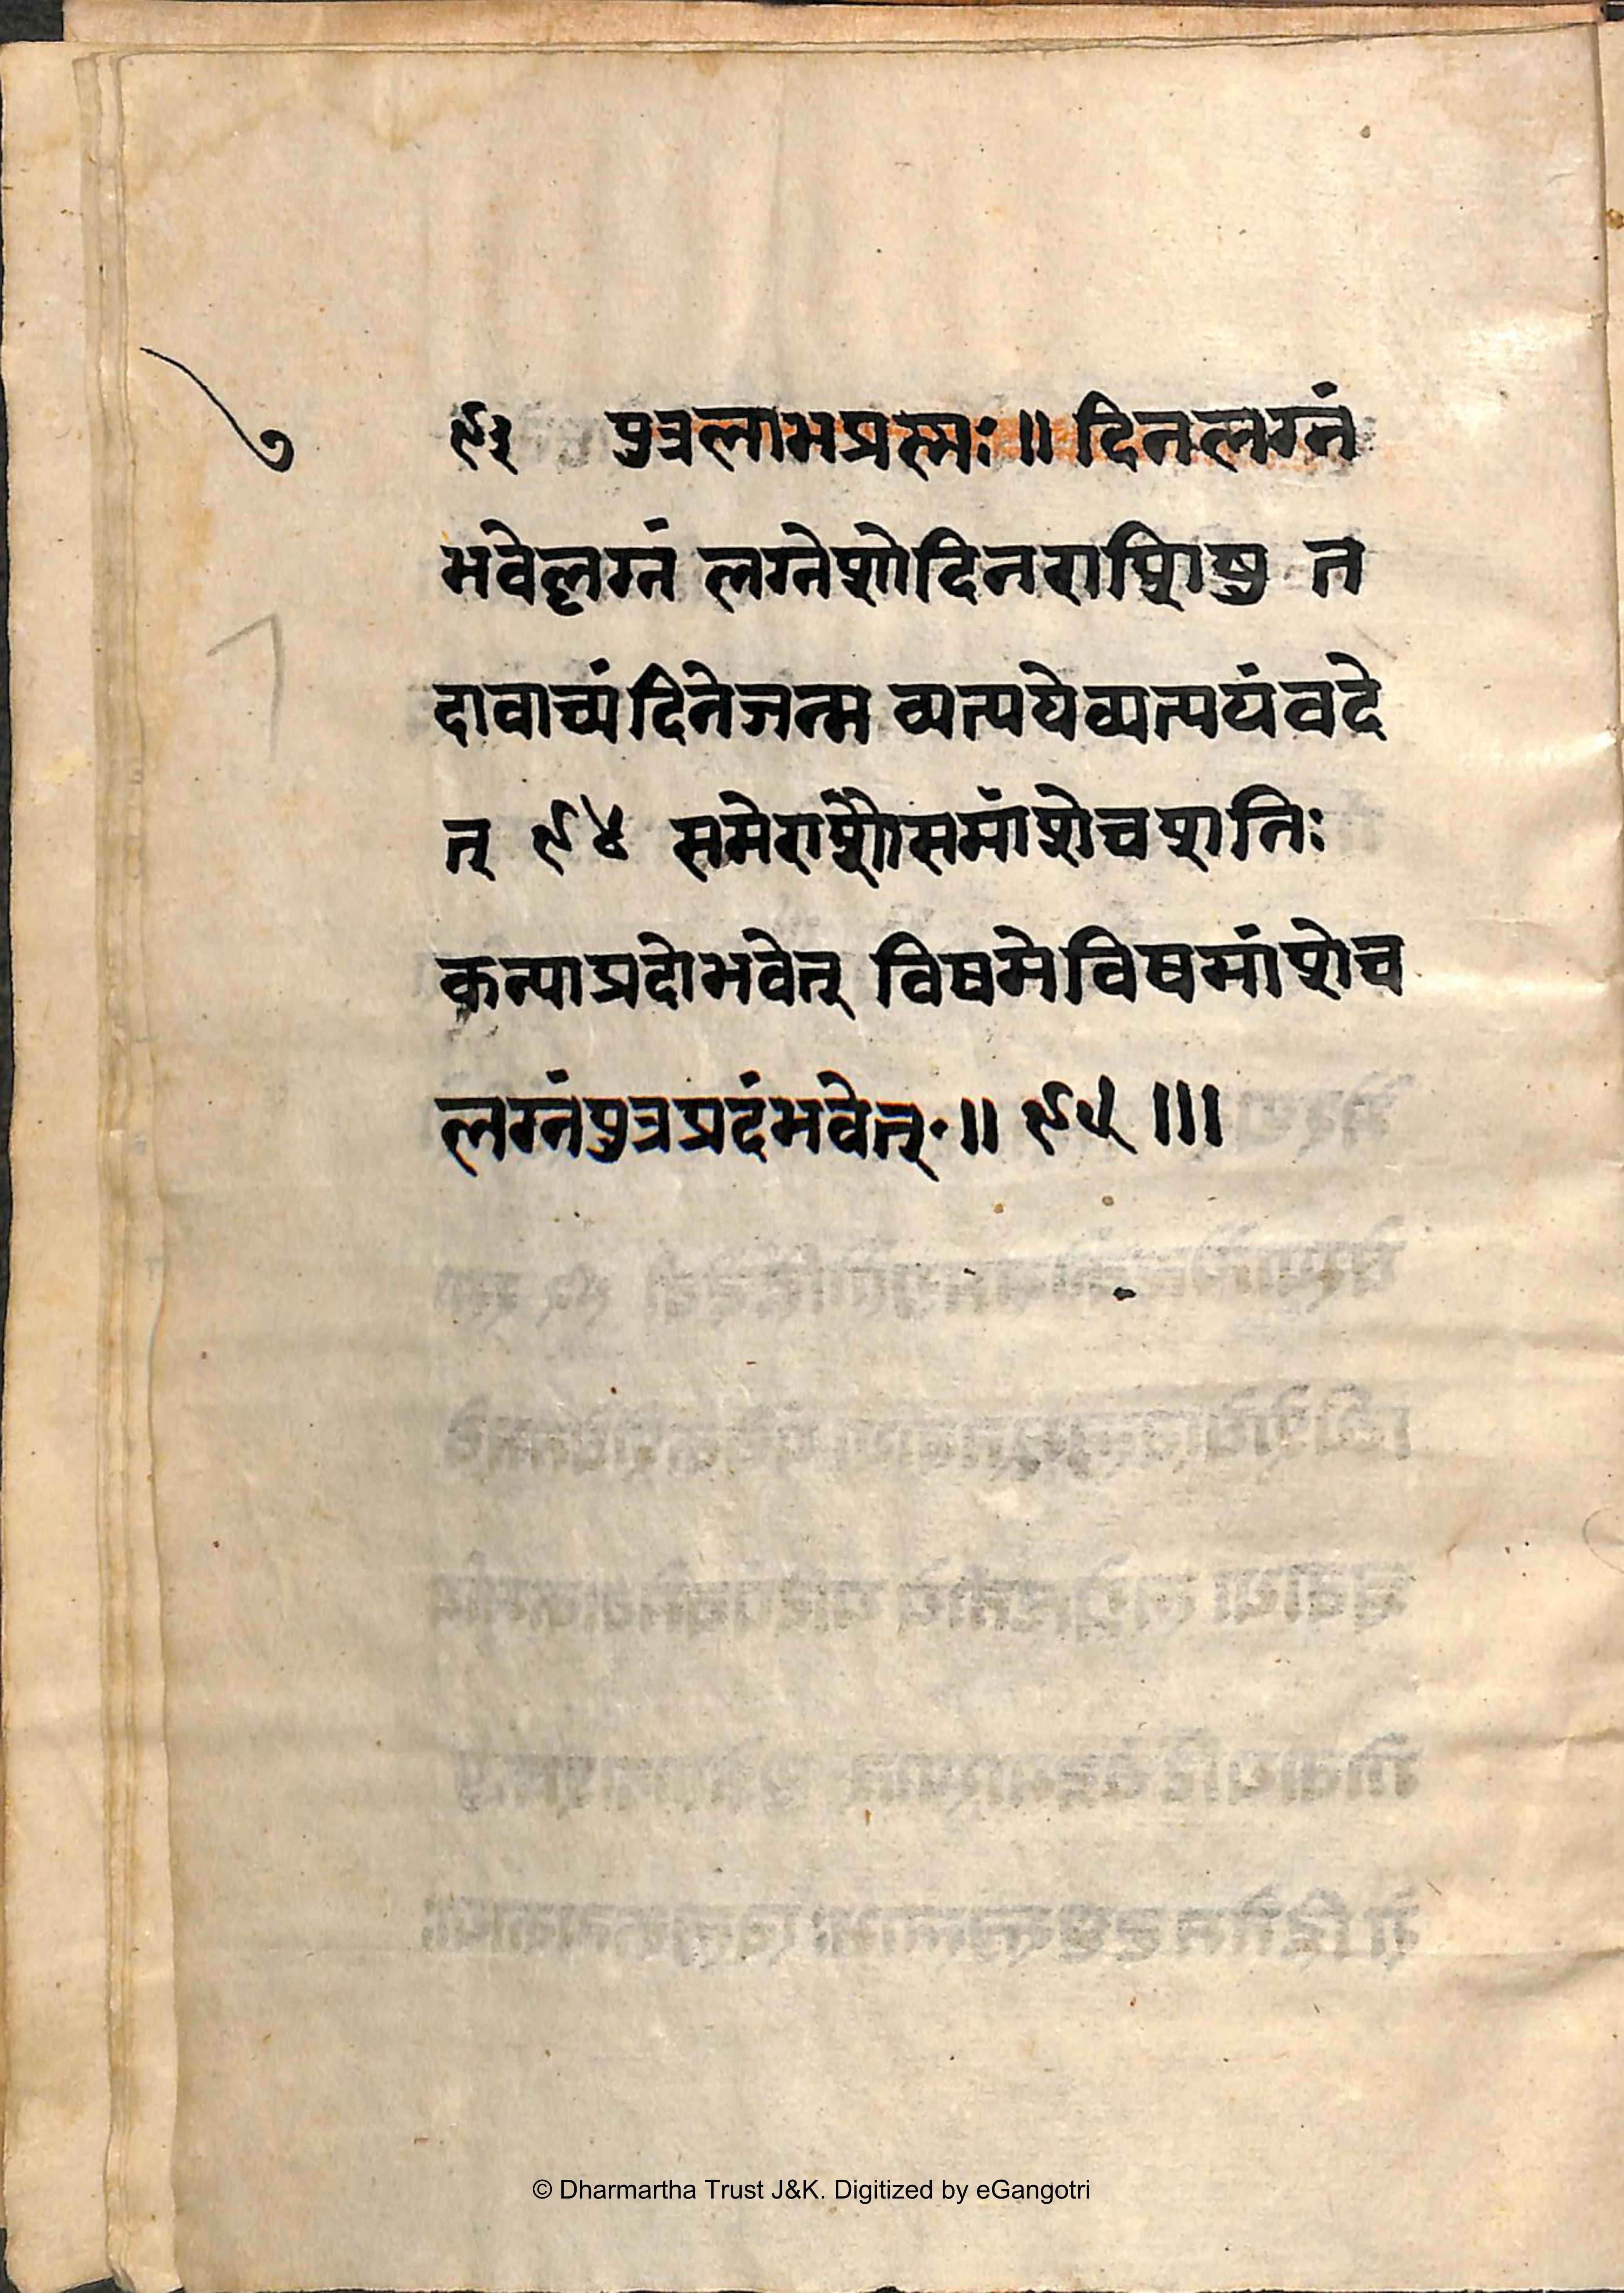 ७
९३ पुत्रलाभप्रस्नः॥ दिनलग्नं
भवेल्लग्नं लग्नेशोदिनराशिषु त
दावाच्यंदिनेजन्म व्यत्यये व्यत्ययंवदे
त् ९४ समेराशौसमांशेचशनिः
कन्याप्रदोभवेत् विषमेविषमांशेच
लग्नंपुत्रप्रदंभवेत्॥ ९५ ॥।
7
© Dharmartha Trust J&K. Digitized by eGangotri